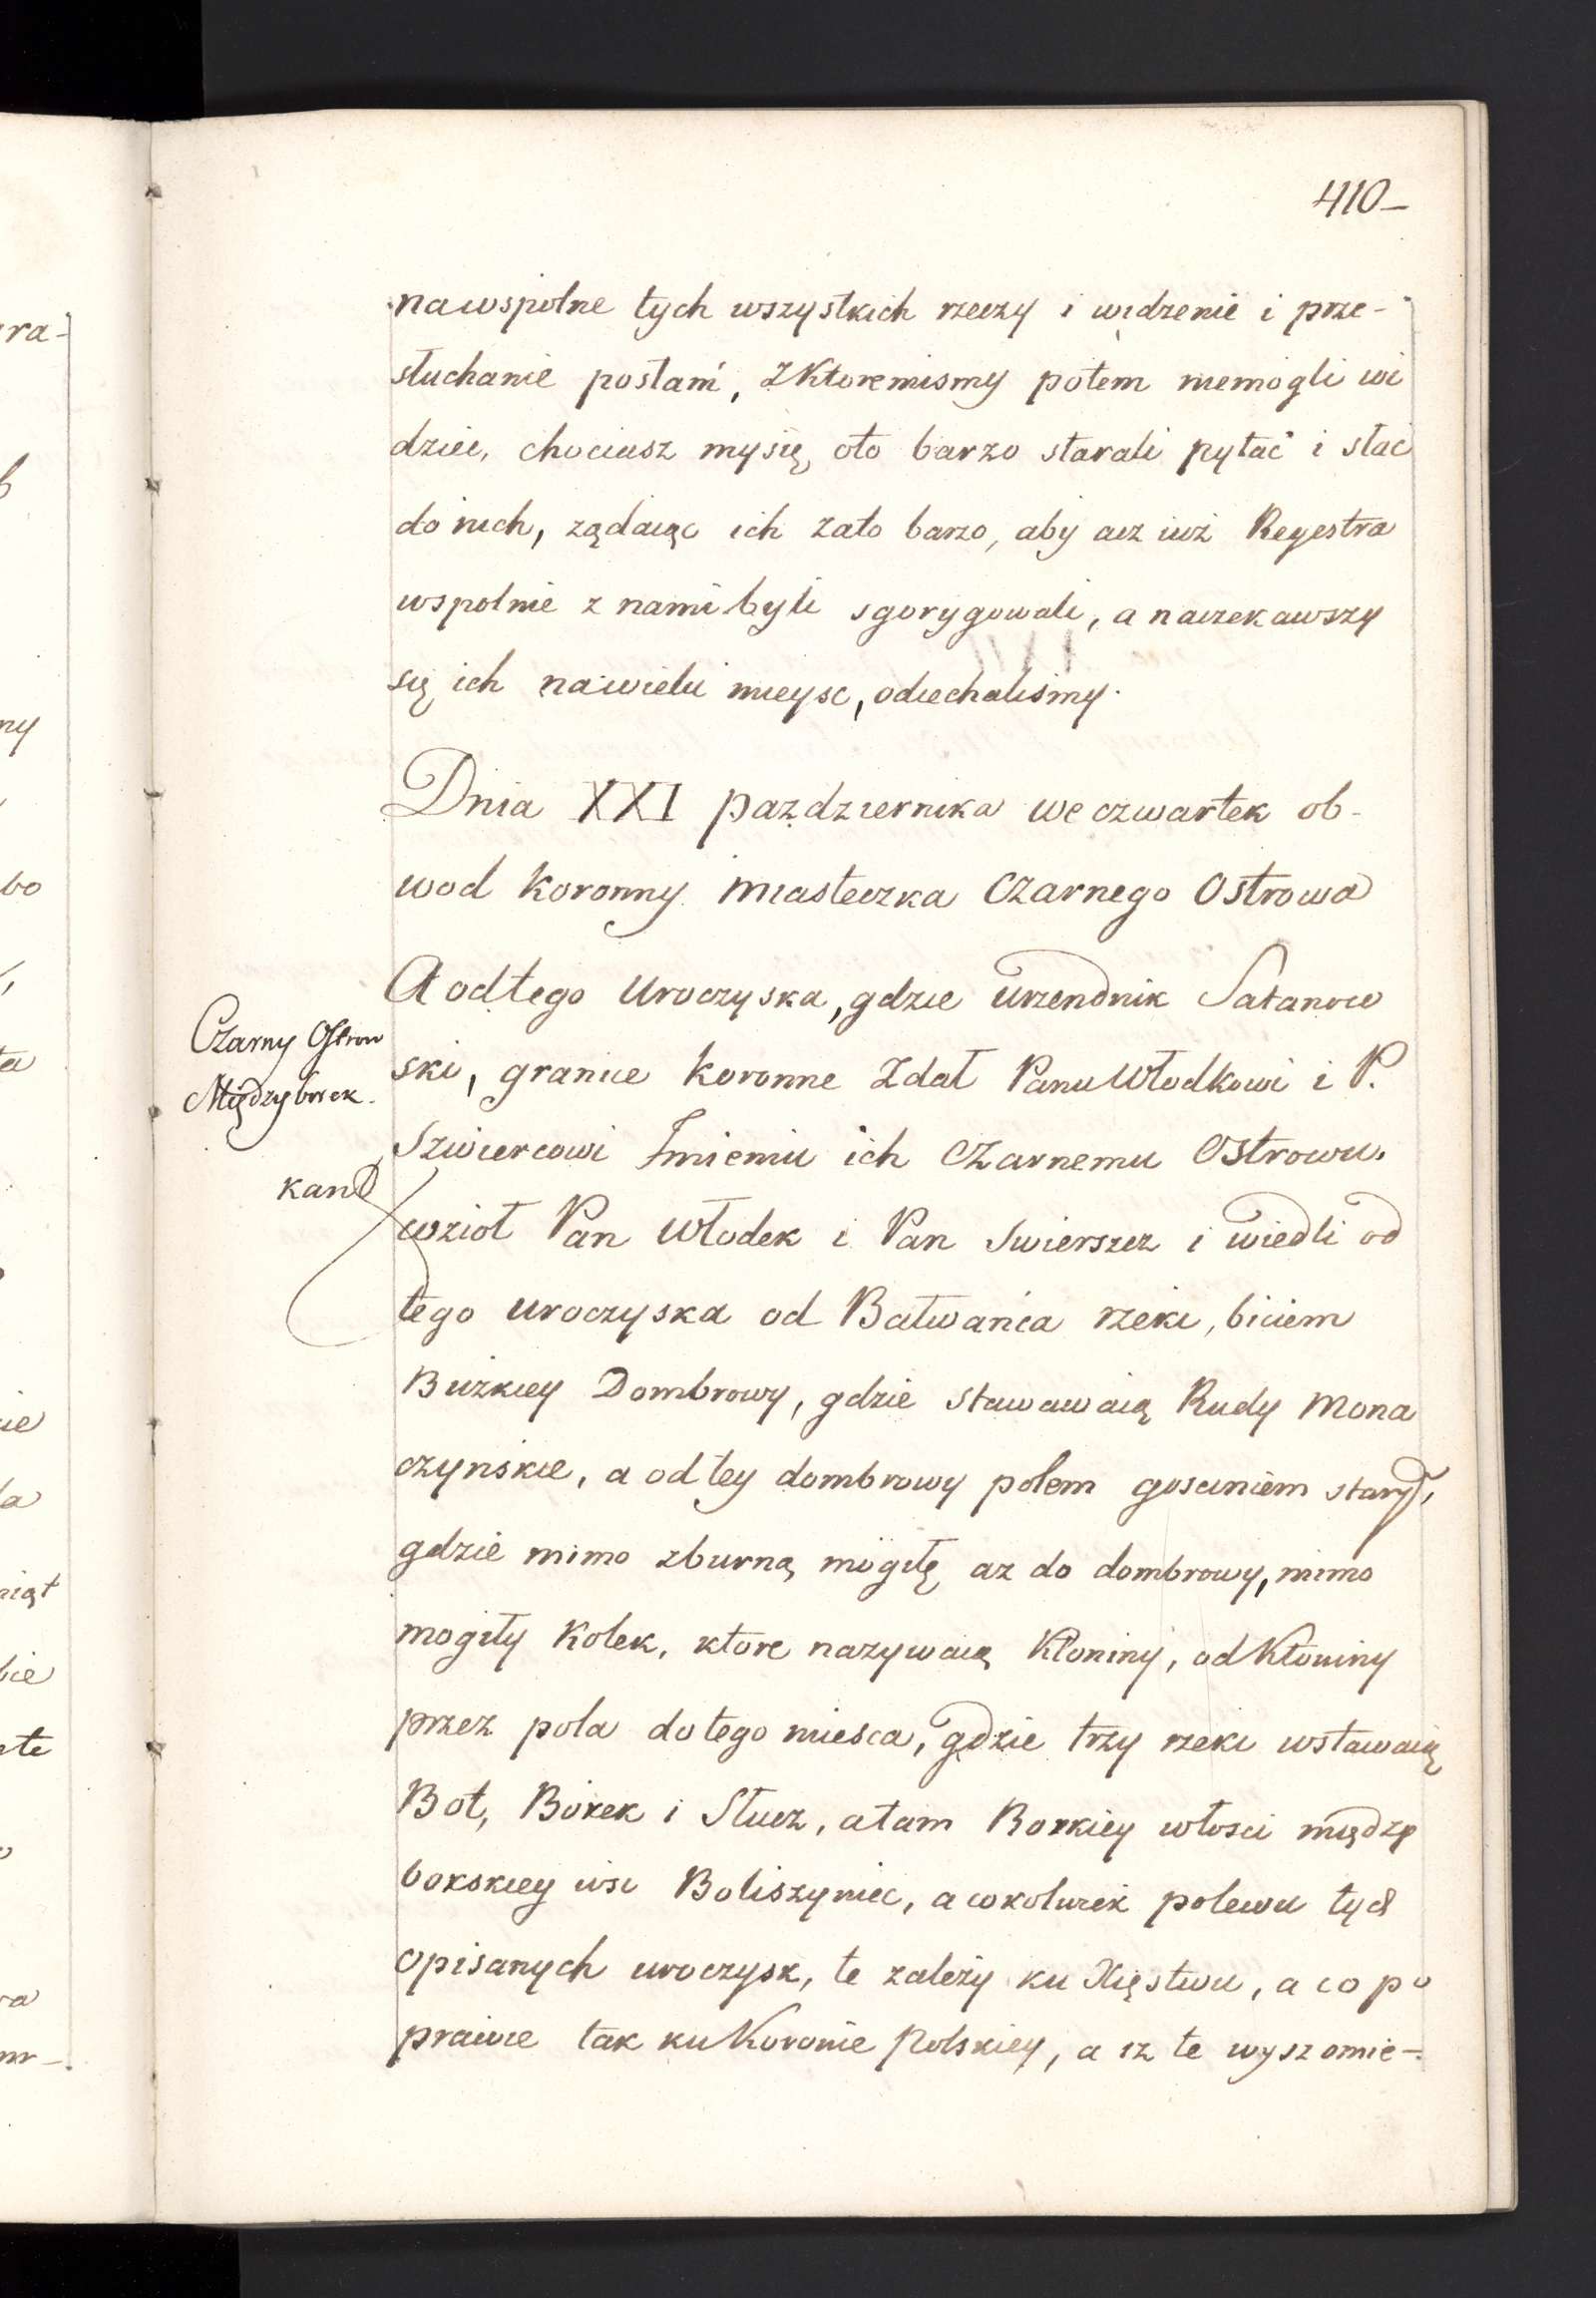 410–
nawspolne tych wszystkich rzeczy i widzenie i prze-
słuchanie posłani, zKtoremismy potem niemogli wi
dziec, chociasz mysię oto barzo starali pytać i słac
do nich, ządaiąc ich zato barzo, aby acz iuż Regestra
wspolnie z nami byli sgorygowali, a naczekawszy
się ich nawielu mieysc, odiechalismy.
Dnia XXI pazdziernika we czwartek ob-
wod koronny miasteczka Czarnego Ostrowa
A odtego Uroczyska, gdzie Urzendnik Satanow
ski, granice koronne zdał Panu Włodkowi i P.
Szwiercowi Imieniu ich Czarnemu Ostrowu.
Czarny Ostrow
Międzyborek.
kand
wzioł Pan Włodek i Pan Swierszcz i wiedli od
tego uroczyska od Bałwańca rzeki, biciem
Buzkiey Dombrowy, gdzie stawawaią Rudy Mona
czynskie, a od tey dombrowy polem gosciniem starÿ,
gdzie mimo zburną mogiłę az do dombrowy, mimo
mogiły Kolek, ktore nazywaią Kłoniny, od Kłoniny
przez pola do tego miesca, gdzie trzy rzeki wstawaią
Bot, Bożek i Słucz, atam Bozkiey włosci między
bozskiey wsi Boliszyniec, a cokolwiek polewu tych
opisanych uroczysk, te zależy ku Xięstwu, a co po
prawie tak ku Koronie Polskiey, a iz te wyszomie-